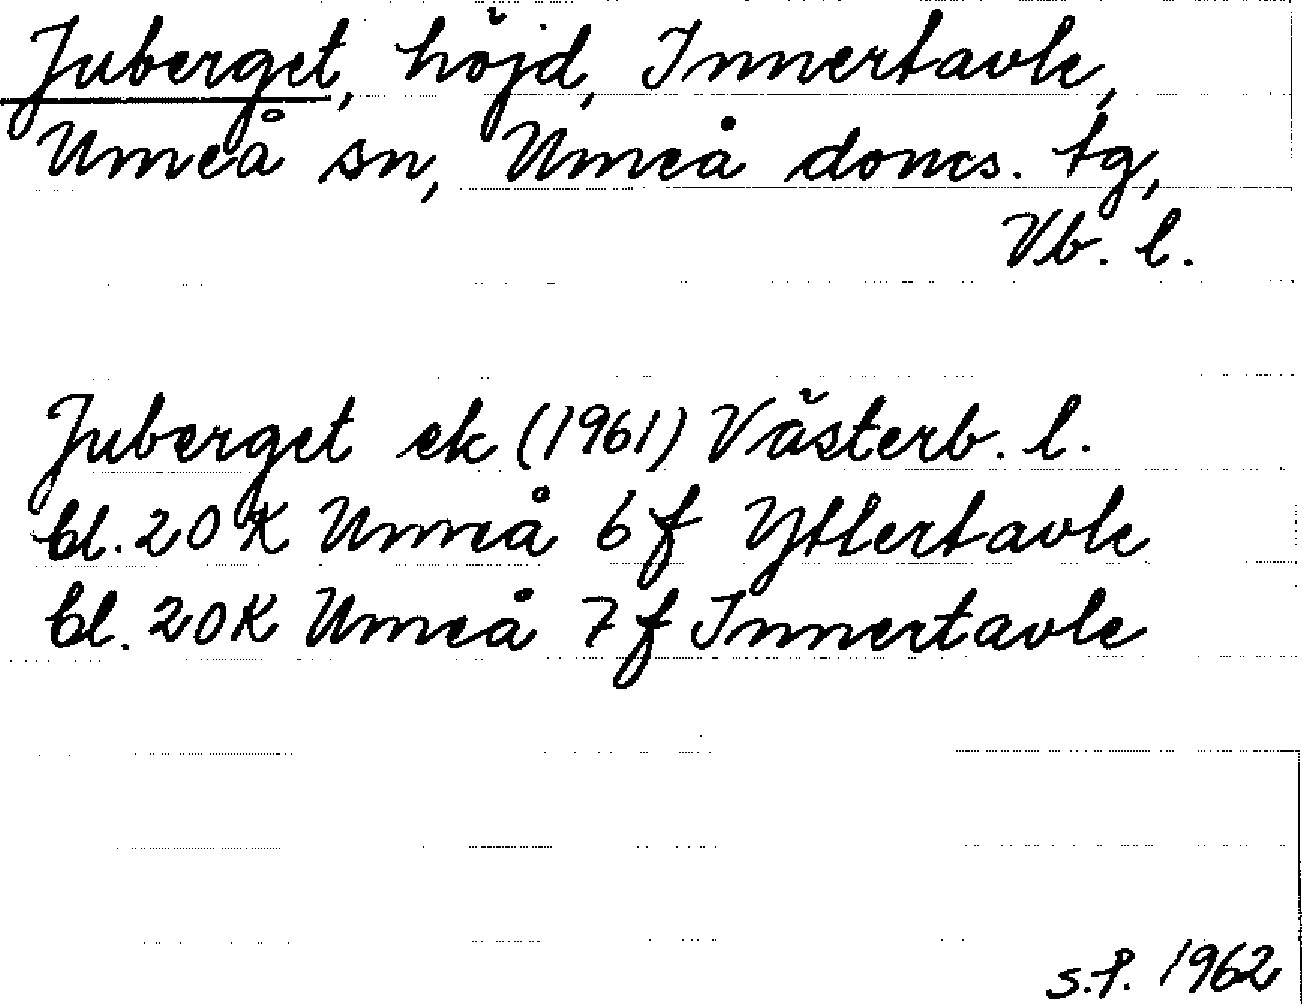 Juberget, höjd, Innertavle,
Umeå sn, Umeå doms. tg,
Vb. l.
Juberget ek (1961) Västerb. l.
bl. 20 K Umeå 6 f Yttertavle
bl. 20K Umeå 7 f Innertavle
s.f. 1962